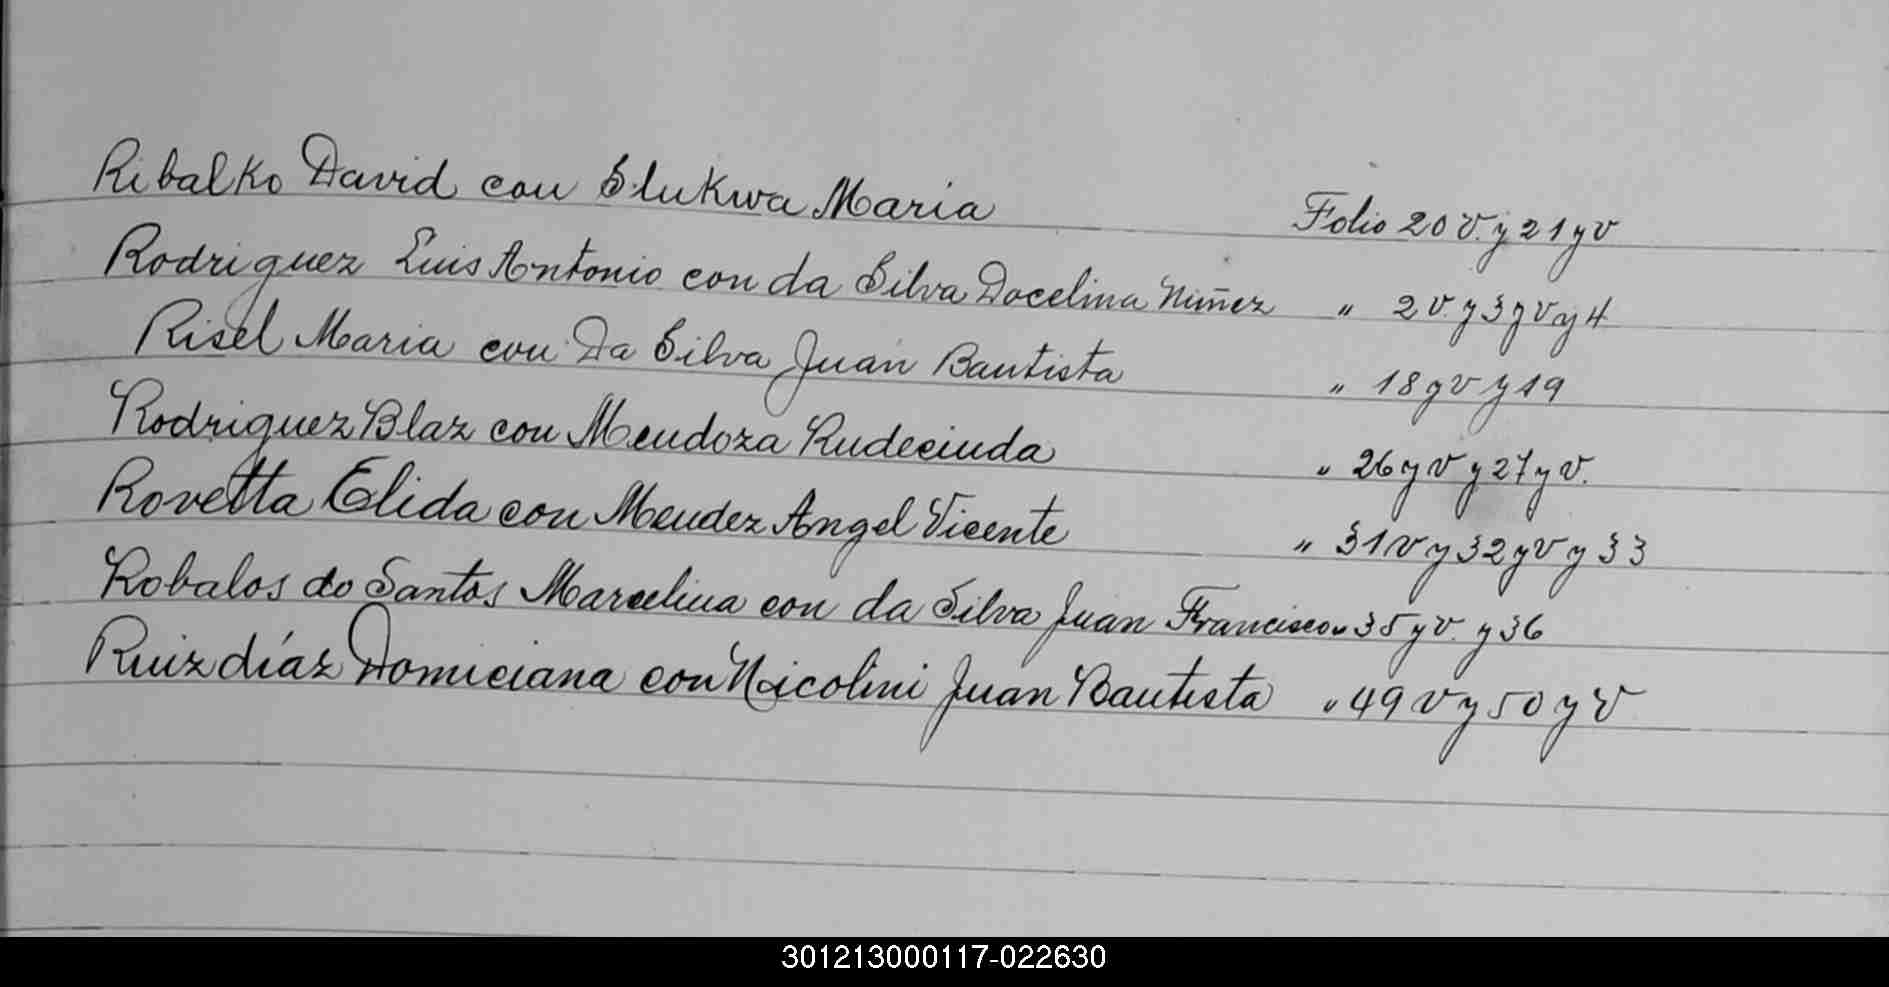 Ribalko David con Slukwa Maria Folio 20 v. y 21 y v
Rodriguez Luis Antonio con da Silva Docelina Nuñez " 2 v. y 3 y v y 4
Risel Maria con Da Silva Juan Bautista " 18 y v y 19
Rodriguez Blaz con Mendoza Rudecinda " 26 y v y 27 y v.
Rovetta Elida con Mendez Angel Vicente " 31 v y 32 y v y 33
Robalos do Santos Marcelina con da Silva Juan Francisco " 35 y v. y 36
Ruizdíaz Domiciana con Nicolini Juan Bautista " 49 v y 50 y v
301213000117-022630